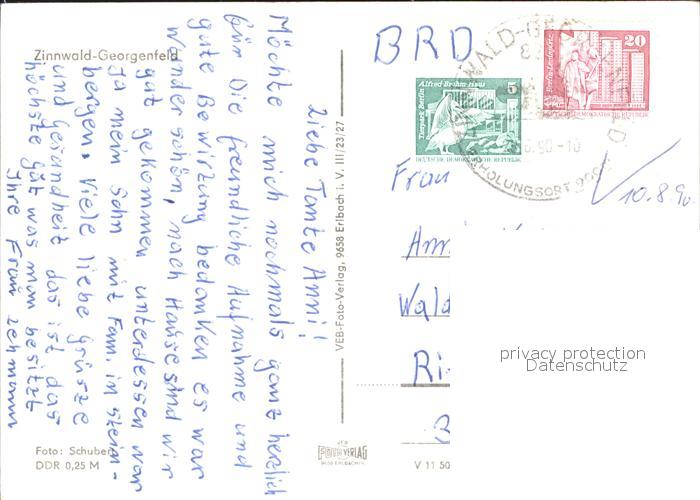 Zinnwald-Georgenfeld
Liebe Tante Anni!
Möchte mich nochmals ganz herzlich
für Die freundliche Aufnahme und
gute Bewirtung bedanken es war
wunderschön, nach Hause sind wir
gut gekommen unterdessen war
ja mein Sohn mit Fam. in Stein-
bergen. Viele liebe Grüsze
und Gesundheit das ist das
höchste gut was man besitzt
Ihre Frau Lehmann
Foto: Schubert
DDR 0,25 M
VEB-Foto-Verlag, 9658 Erlbach i. V. III/23/27
VEB
FOTO VERLAG
9658 ERLBACH
V 11 50
BRD
Tierpark Berlin Alfred-Brehm-Haus 5
DEUTSCHE DEMOKRATISCHE REPUBLIK
Berlin, Leninplatz 20
DEUTSCHE DEMOKRATISCHE REPUBLIK
90.-10
ERHOLUNGSORT
Frau
10.8.90
Ann
Wald
Ri
privacy protection
Datenschutz